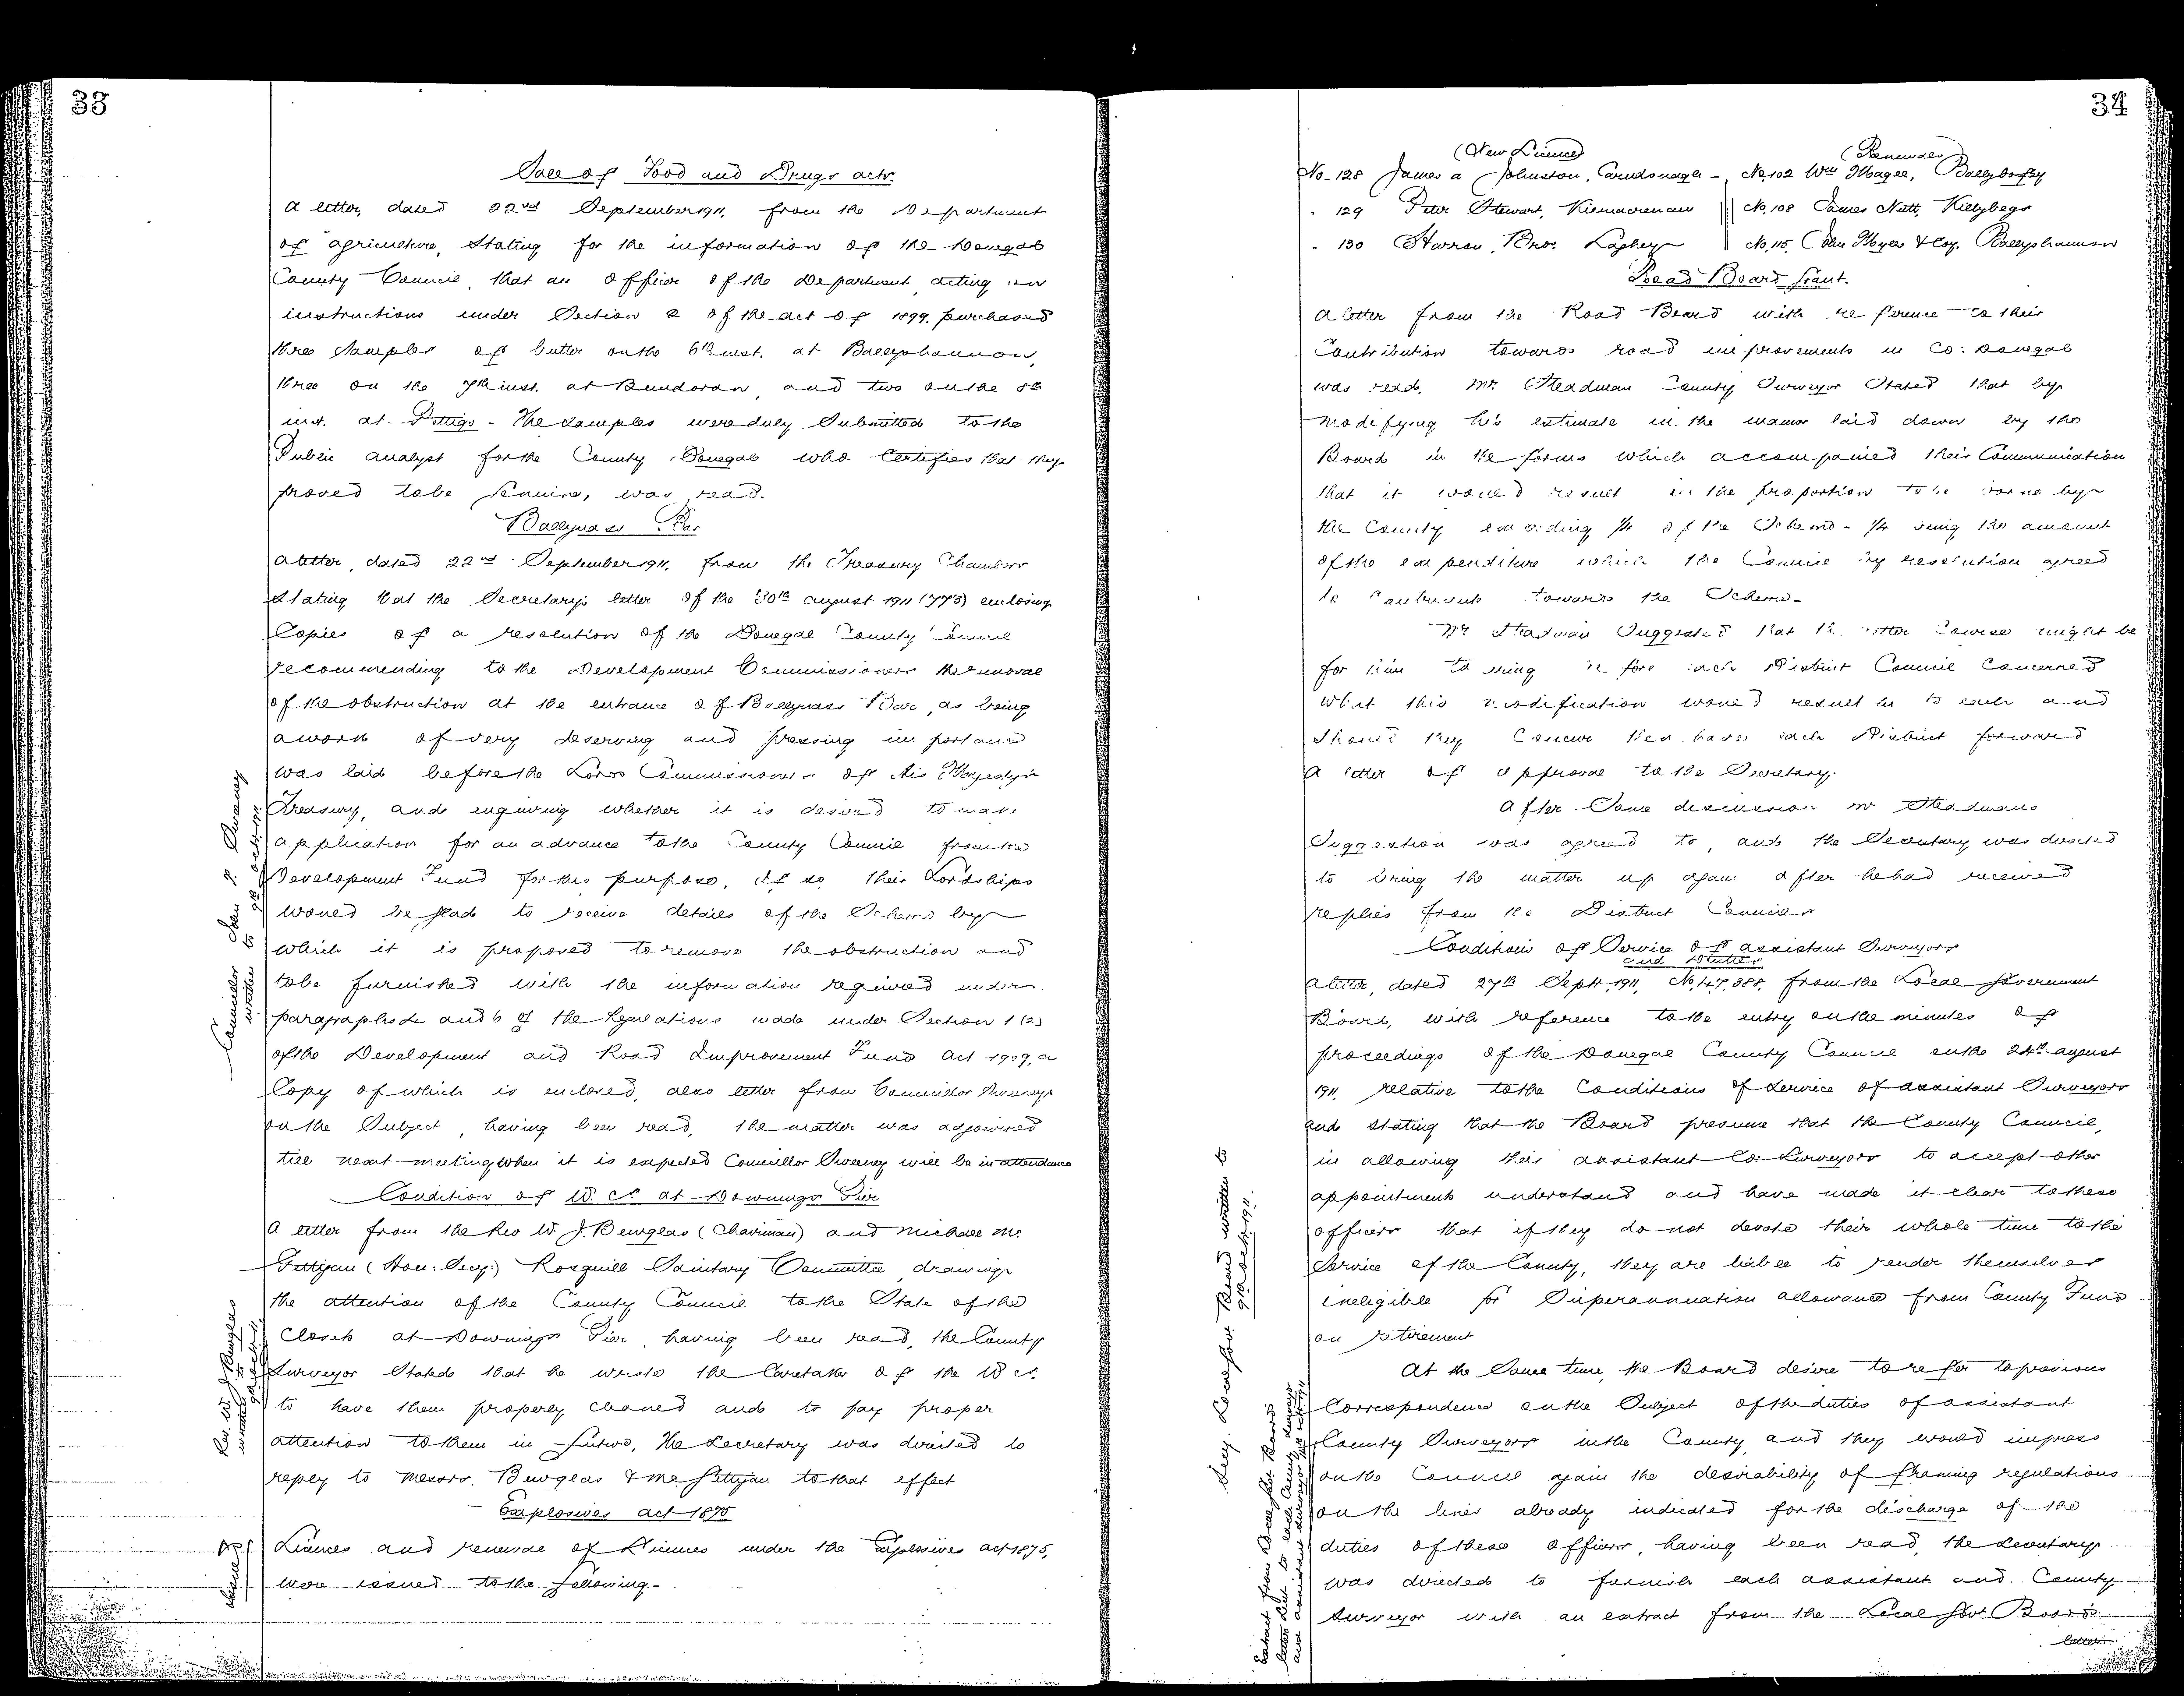 33
Sale of Food and Drugs Acts.
A letter, dated 22nd September 1911, from the Department
of Agriculture, stating for the information of the Donegal
County Council, that an Officer of the Department, acting on
instructions under Section 2 of the Act of 1899, purchased
three Samples of butter on the 6th inst. at Ballyshannon,
three on the 7th inst. at Bundoran, and two on the 8th
inst. at Pettigo - The samples were duly Submitted to the
Public Analyst for the County Donegal who Certifies that they
proved to be genuine, was read.
Ballyness Bar
A letter, dated 22nd September 1911, from the Treasury Chambers
stating that the Secretary's letter of the 30th August 1911 (773) enclosing
Copies of a resolution of the Donegal County Council
recommending to the Development Commissioners the removal
of the obstruction at the entrance of Ballyness Bar, as being
a work of very deserving and pressing importance
was laid before the Lords Commissioners of His Majesty's
Treasury, and enquiring whether it is desired to make
application for an advance to the County Council from the
Development Fund for this purpose, if so, their Lordships
would be glad to receive details of the Scheme by
which it is proposed to remove the obstruction and
to be furnished with the information required under
paragraphs and 6 of the Regulations made under Section 1 (2)
of the Development and Road Improvement Fund Act 1909, a
Copy of which is enclosed, also letter from Councillor Sweeney
on the Subject, having been read, the matter was adjourned
till next meeting when it is expected Councillor Sweeney will be in attendance
Councillor Dan J. Sweeney
written to 9th Oct. 1911.
Condition of W. Cs at Downings Pier
A letter from the Rev W. J. Bewglas (Chairman) and Michael Mc
Fettigan (Hon: Secy:) Rosguill Sanitary Committee, drawing
the attention of the County Council to the State of the
Closets at Downings Pier, having been read, the County
Surveyor Stated that he wrote the Caretaker of the W Cs.
to have them properly cleaned and to pay proper
attention to them in future, The Secretary was directed to
reply to Messrs. Bewglas & McFettigan to that effect
Rev. W. J. Bewglas
written to
Explosives Act 1875
Licences and renewal of Licences under the Explosives Act 1875,
were issued to the following -
Issued
34
(New Licence) (Renewals)
No. 128 James A Johnston, Carndonagh - No. 102 Wm Magee, Ballybofey
" 129 Peter Stewart, Kilmacrenan No. 108 James Nutt, Killybegs
" 130 Harron Bros. Laghey No. 115, John Myles & Coy. Ballyshannon
Road Board Grant.
A letter from the Road Board with reference to their
Contribution towards road improvements in Co: Donegal
was read. Mr. Steadman County Surveyor Stated that by
modifying his estimate in the manner laid down by the
Board in the forms which accompanied their Communication
that it would result in the proportion to be borne by
the County exceeding 1/4 of the Scheme - 1/4 being the amount
of the expenditure which the Council by resolution agreed
to Contribute towards the Scheme -
Mr Steadman Suggested that the better Course might be
for him to bring before each District Council Concerned
what this modification would result in to each and
should they Concur then have each District forward
a letter of approval to the Secretary.
After Some discussion Mr Steadmans
Suggestion was agreed to, and the Secretary was directed
to bring the matter up again after he had received
replies from the District Councils
Conditions of Service of Assistant Surveyors
and Duties
A letter, dated 27th Sept. 1911, No. 47,388, from the Local Government
Board, with reference to the entry on the minutes of
proceedings of the Donegal County Council on the 24th August
1911, relative to the Conditions of Service of Assistant Surveyors
and stating that the Board presume that the County Council,
in allowing their Assistant Co. Surveyors to accept other
appointments understand and have made it clear to these
officers that if they do not devote their whole time to the
Service of the County, they are liable to render themselves
ineligible for Superannuation allowance from County Fund
on retirement
Secy. Local Govt. Board written to
9th Oct. 1911.
At the Same time, the Board desire to refer to previous
Correspondence on the Subject of the duties of Assistant
County Surveyors in the County, and they would impress
on the Council again the desirability of framing regulations
on the lines already indicated for the discharge of the
duties of these officers, having been read, the Secretary
was directed to furnish each Assistant and County
Surveyor with an extract from the Local Govt. Boards
letter
Extract from Local Govt Boards
letter sent to each County Surveyor
and Assistant Surveyor